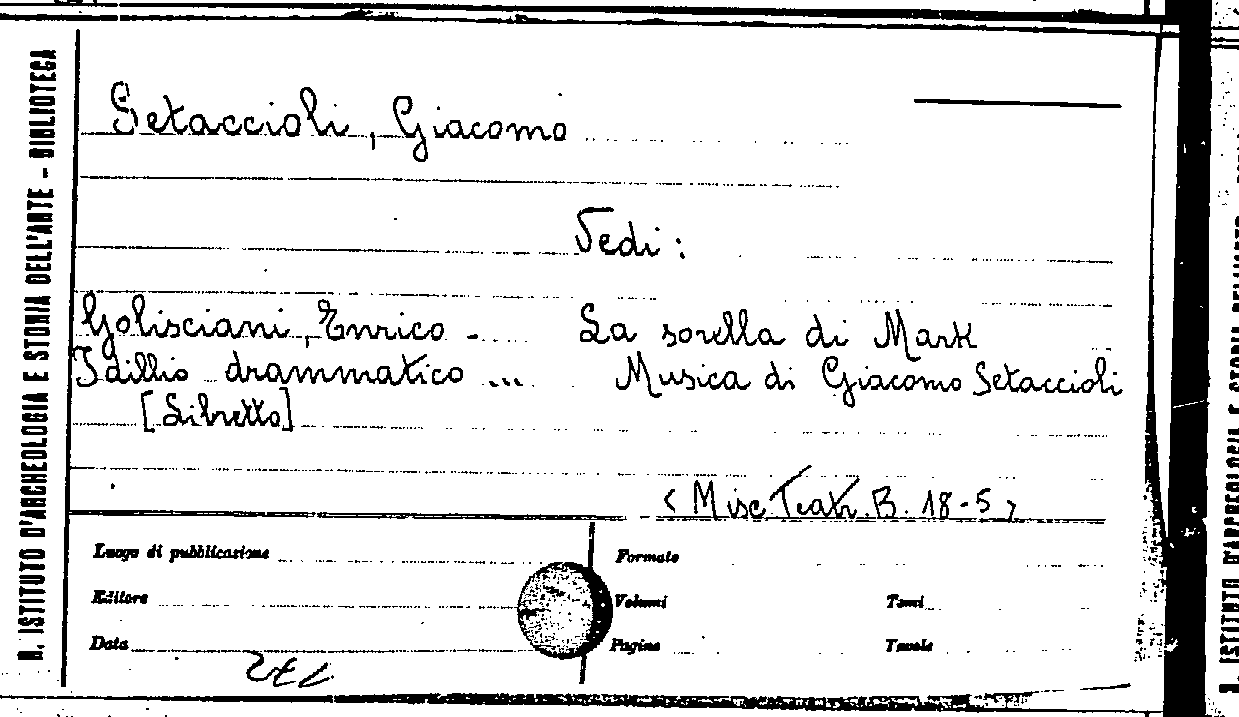 R. ISTITUTO D'ARCHEOLOGIA E STORIA DELL'ARTE - BIBLIOTECA
Setaccioli, Giacomo
Vedi:
Golisciani, Enrico - La sorella di Mark
Idillio drammatico ... Musica di Giacomo Setaccioli
[Libretto]
< Misc Teatr. B. 18-5 >
Luogo di pubblicazione Formato
Editore Volumi Tomi
Data Pagine Tavole